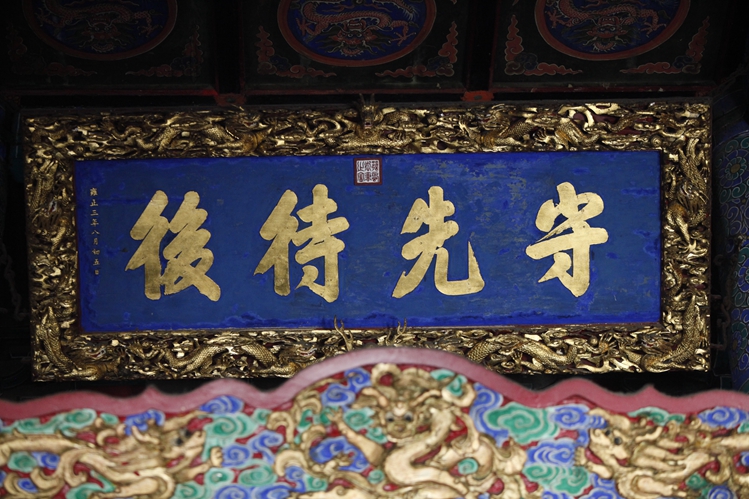 守先待後
雍正三年八月初五日